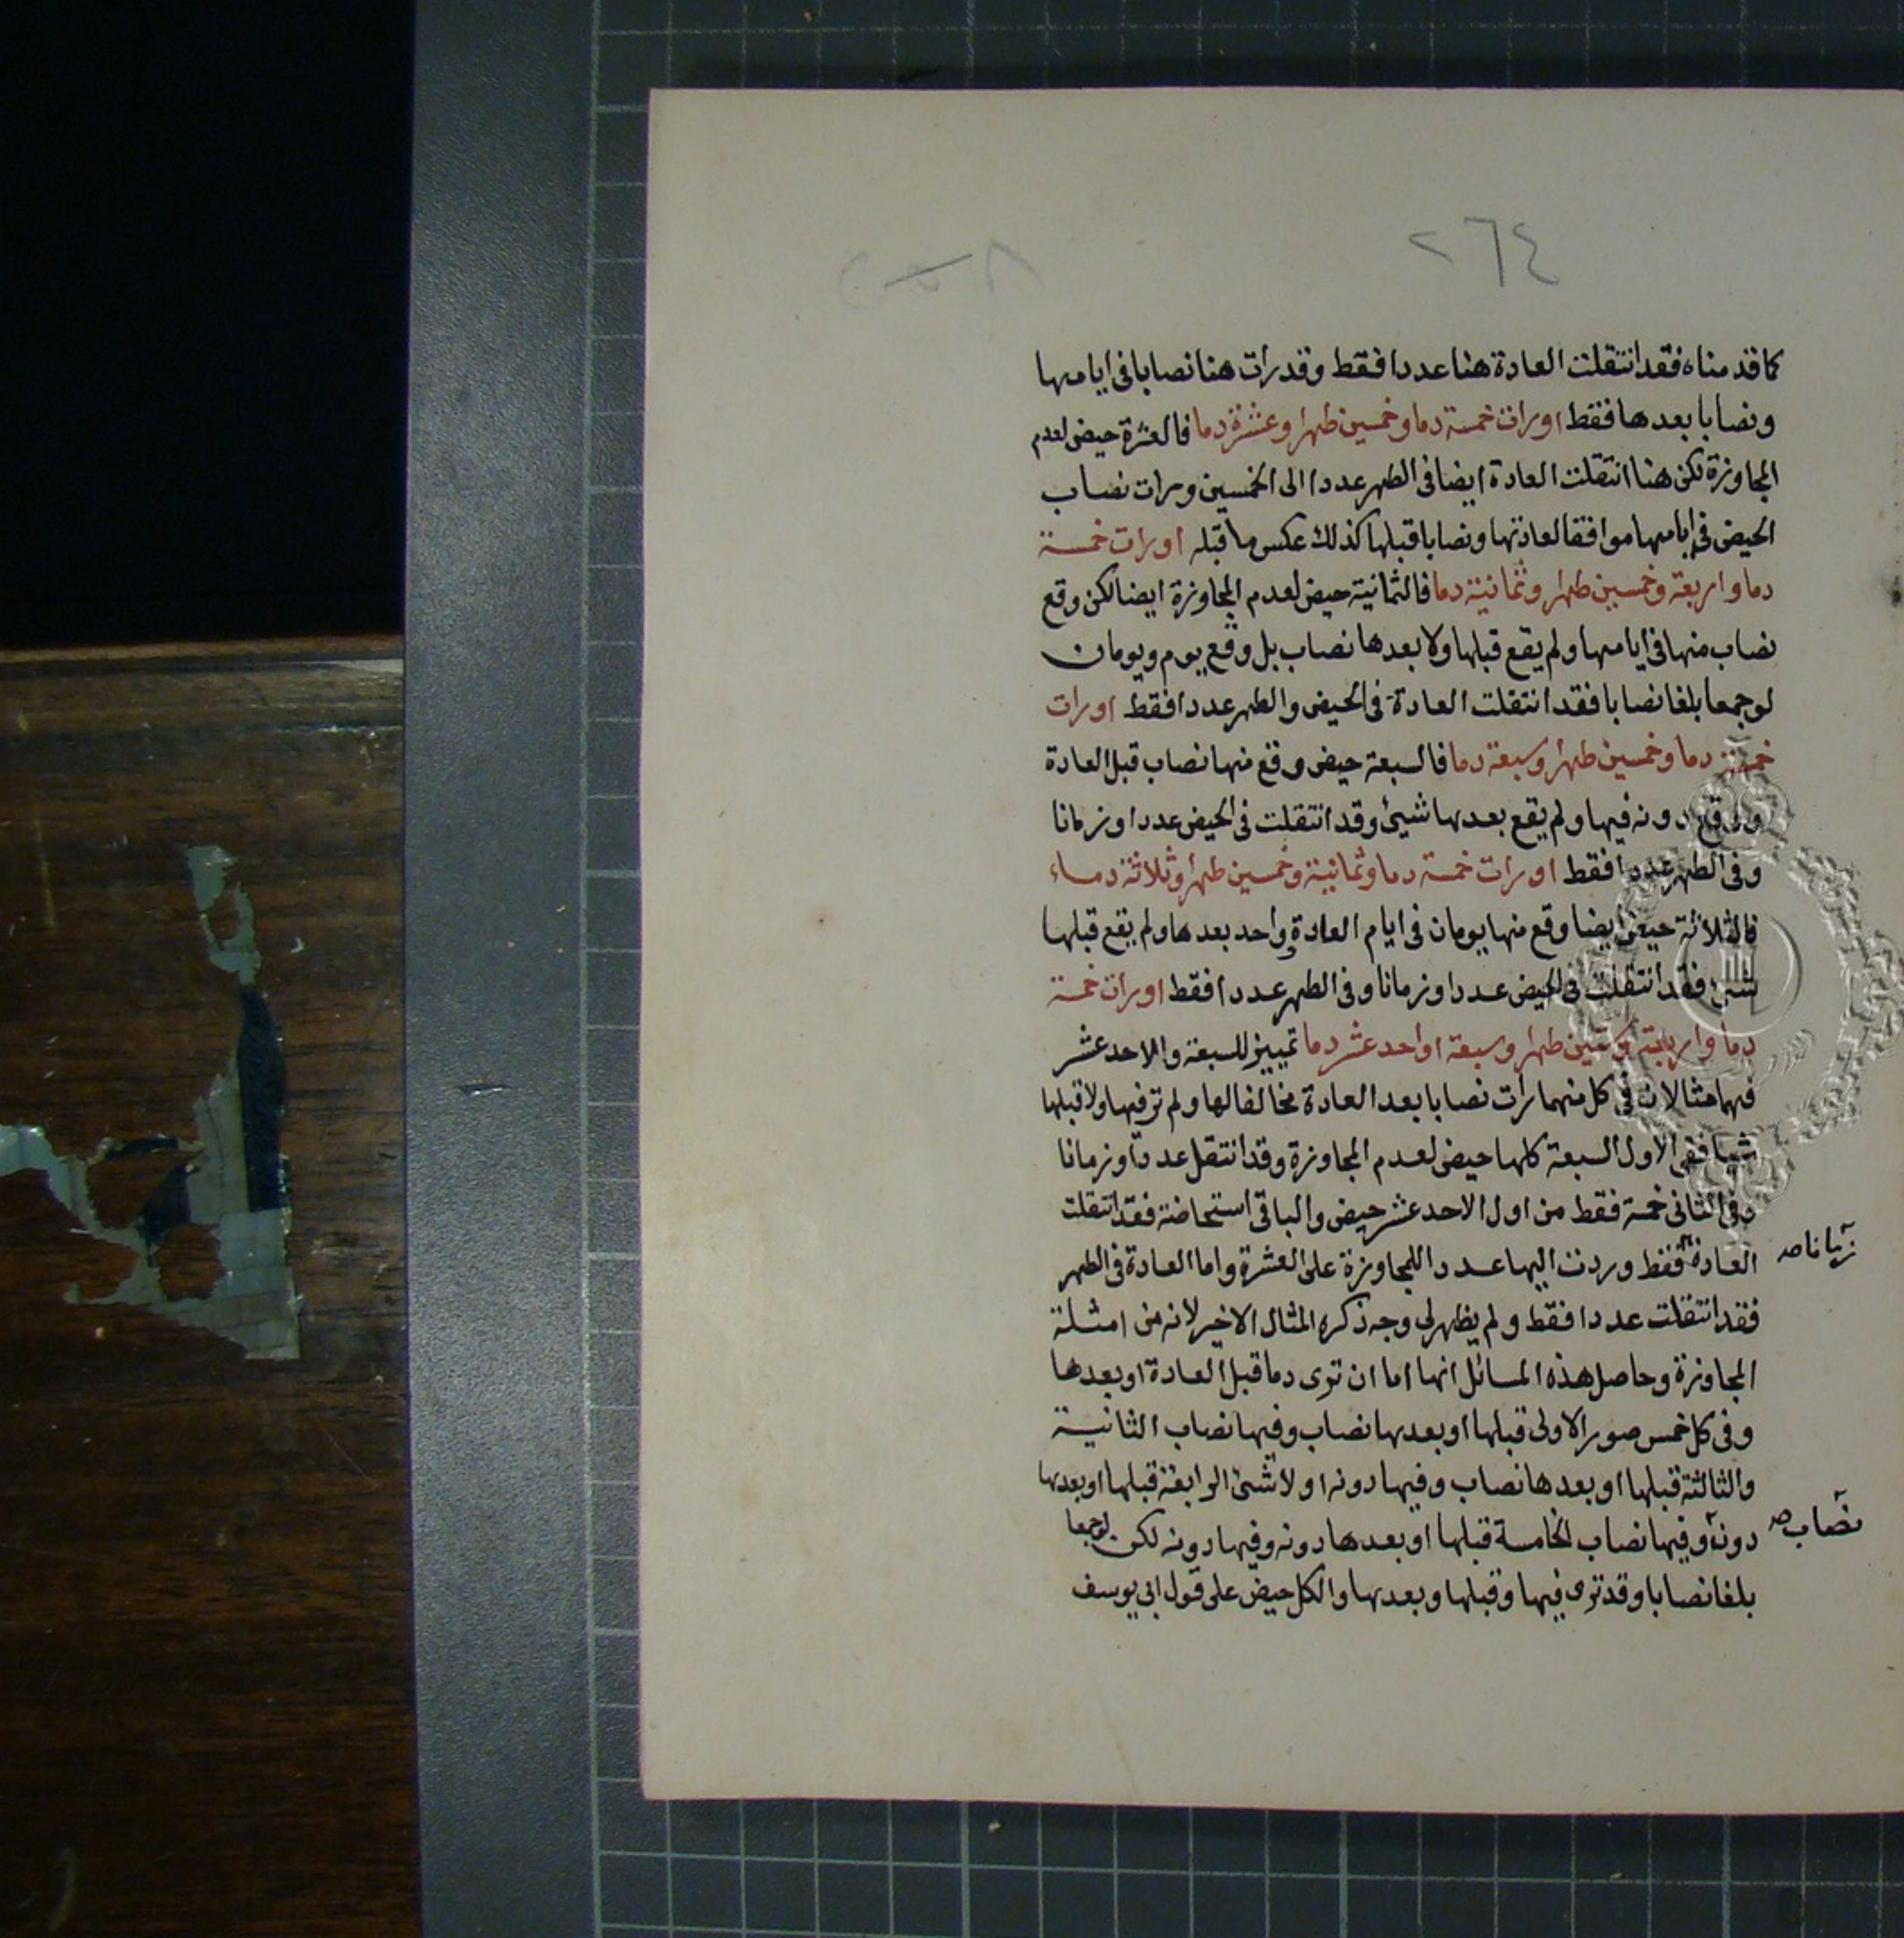 ٢٦٤
كما قدمناه فقد انتقلت العادة هنا عددا فقط وقد رأت هنا نصابا في ايامها
ونصابا بعدها فقط اورات خمسة دما وخمسين طهرا وعشرة دما فالعشرة حيض لعدم
المجاوزة لكن هنا انتقلت العادة ايضا في الطهر عددا الى الخمسين ورات نصاب
الحيض في ايامها موافقا لعادتها ونصابا قبلها كذلك عكس ما قبله اورات خمسة
دما واربعة وخمسين طهرا وثمانية دما فالثمانية حيض لعدم المجاوزة ايضا لكن وقع
نصاب منها في ايامها ولم يقع قبلها ولا بعدها نصاب بل وقع يوم ويومان
لو جمعا بلغا نصابا فقد انتقلت العادة في الحيض والطهر عددا فقط اورات
خمسة دما وخمسين طهرا وسبعة دما فالسبعة حيض وقع منها نصاب قبل العادة
ووقع دونه فيها ولم يقع بعدها شيئ وقد انتقلت في الحيض عددا وزمانا
وفي الطهر عددا فقط اورات خمسة دما وثمانية وخمسين طهرا وثلاثة دماء
فالثلاثة حيض ايضا وقع منها يومان في ايام العادة وواحد بعدها ولم يقع قبلها
شئ فقد انتقلت في الحيض عددا وزمانا وفي الطهر عددا فقط اورات خمسة
دما واربعة وستين طهرا وسبعة او احد عشر دما تمييز للسبعة والاحد عشر
فهما مثالان في كل منهما رأت نصابا بعد العادة مخالفا لها ولم تر فيها ولا قبلها
شيئا ففي الاول السبعة كلها حيض لعدم المجاوزة وقد انتقل عددا وزمانا
وفي الثاني خمسة فقط من اول الاحد عشر حيض والباقي استحاضة فقد انتقلت
العادة فقط وردت اليها عددا للمجاوزة على العشرة واما العادة في الطهر
زمانا صح
فقد انتقلت عددا فقط ولم يظهر لي وجه ذكره المثال الاخير لانه من امثلة
المجاوزة وحاصل هذه المسائل انها اما ان ترى دما قبل العادة او بعدها
وفي كل خمس صور الاولى قبلها او بعدها نصاب وفيها نصاب الثانية
والثالثة قبلها او بعدها نصاب وفيها دونه او لا شئ الرابعة قبلها او بعدها
دونه وفيها نصاب الخامسة قبلها او بعدها دونه وفيها دونه لكن لو جمعا
نصاب صح
بلغا نصابا وقد ترى فيها وقبلها وبعدها والكل حيض على قول ابي يوسف